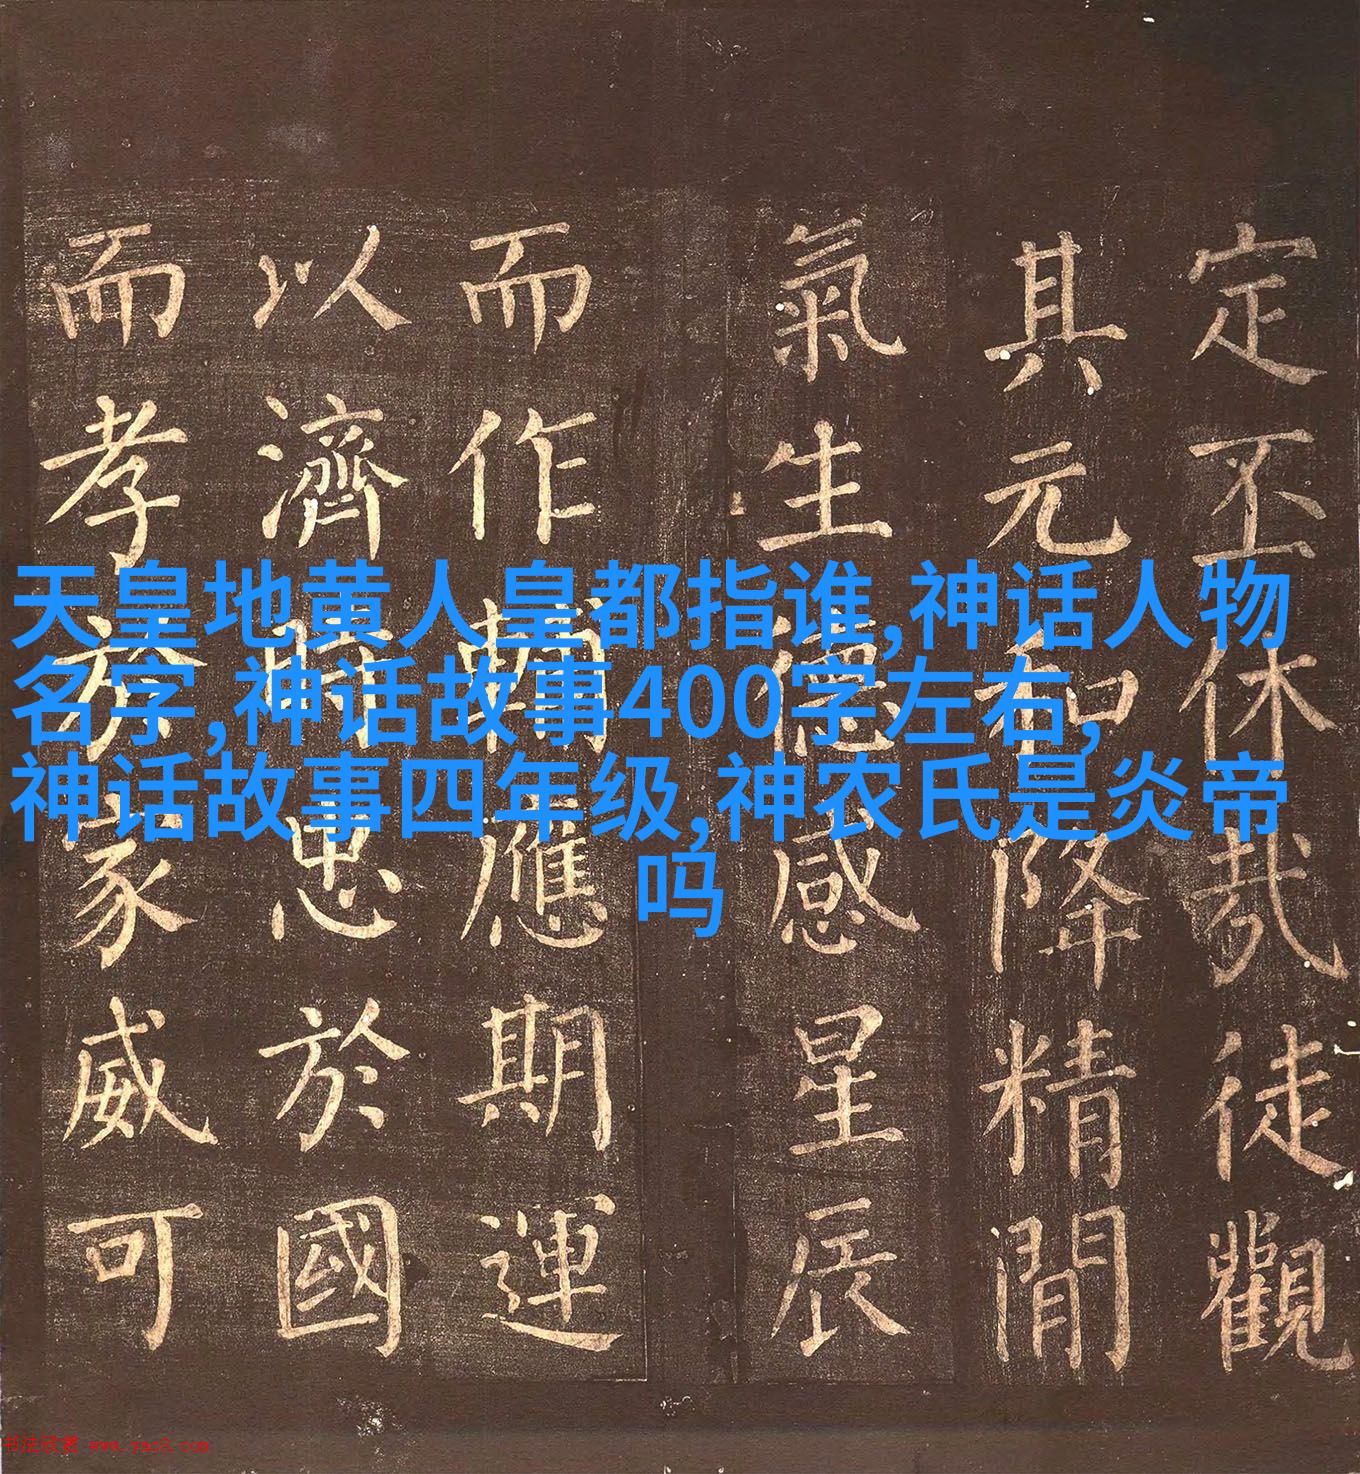 天皇地黄人皇都指谁,神话人物
名字,神话故事400字左右,
神话故事四年级,神农氏是炎帝
吗
定丕休哉徒觀
其元和降精閒
氣生德感星辰
而作輔應期運
以濟時忠於國
而孝於家威可
书法欣赏 www.yac8.com